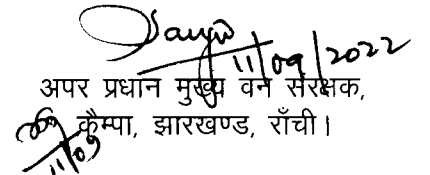 11/09/2022
अपर प्रधान मुख्य वन संरक्षक,
कैम्पा, झारखण्ड, राँची।
11/09